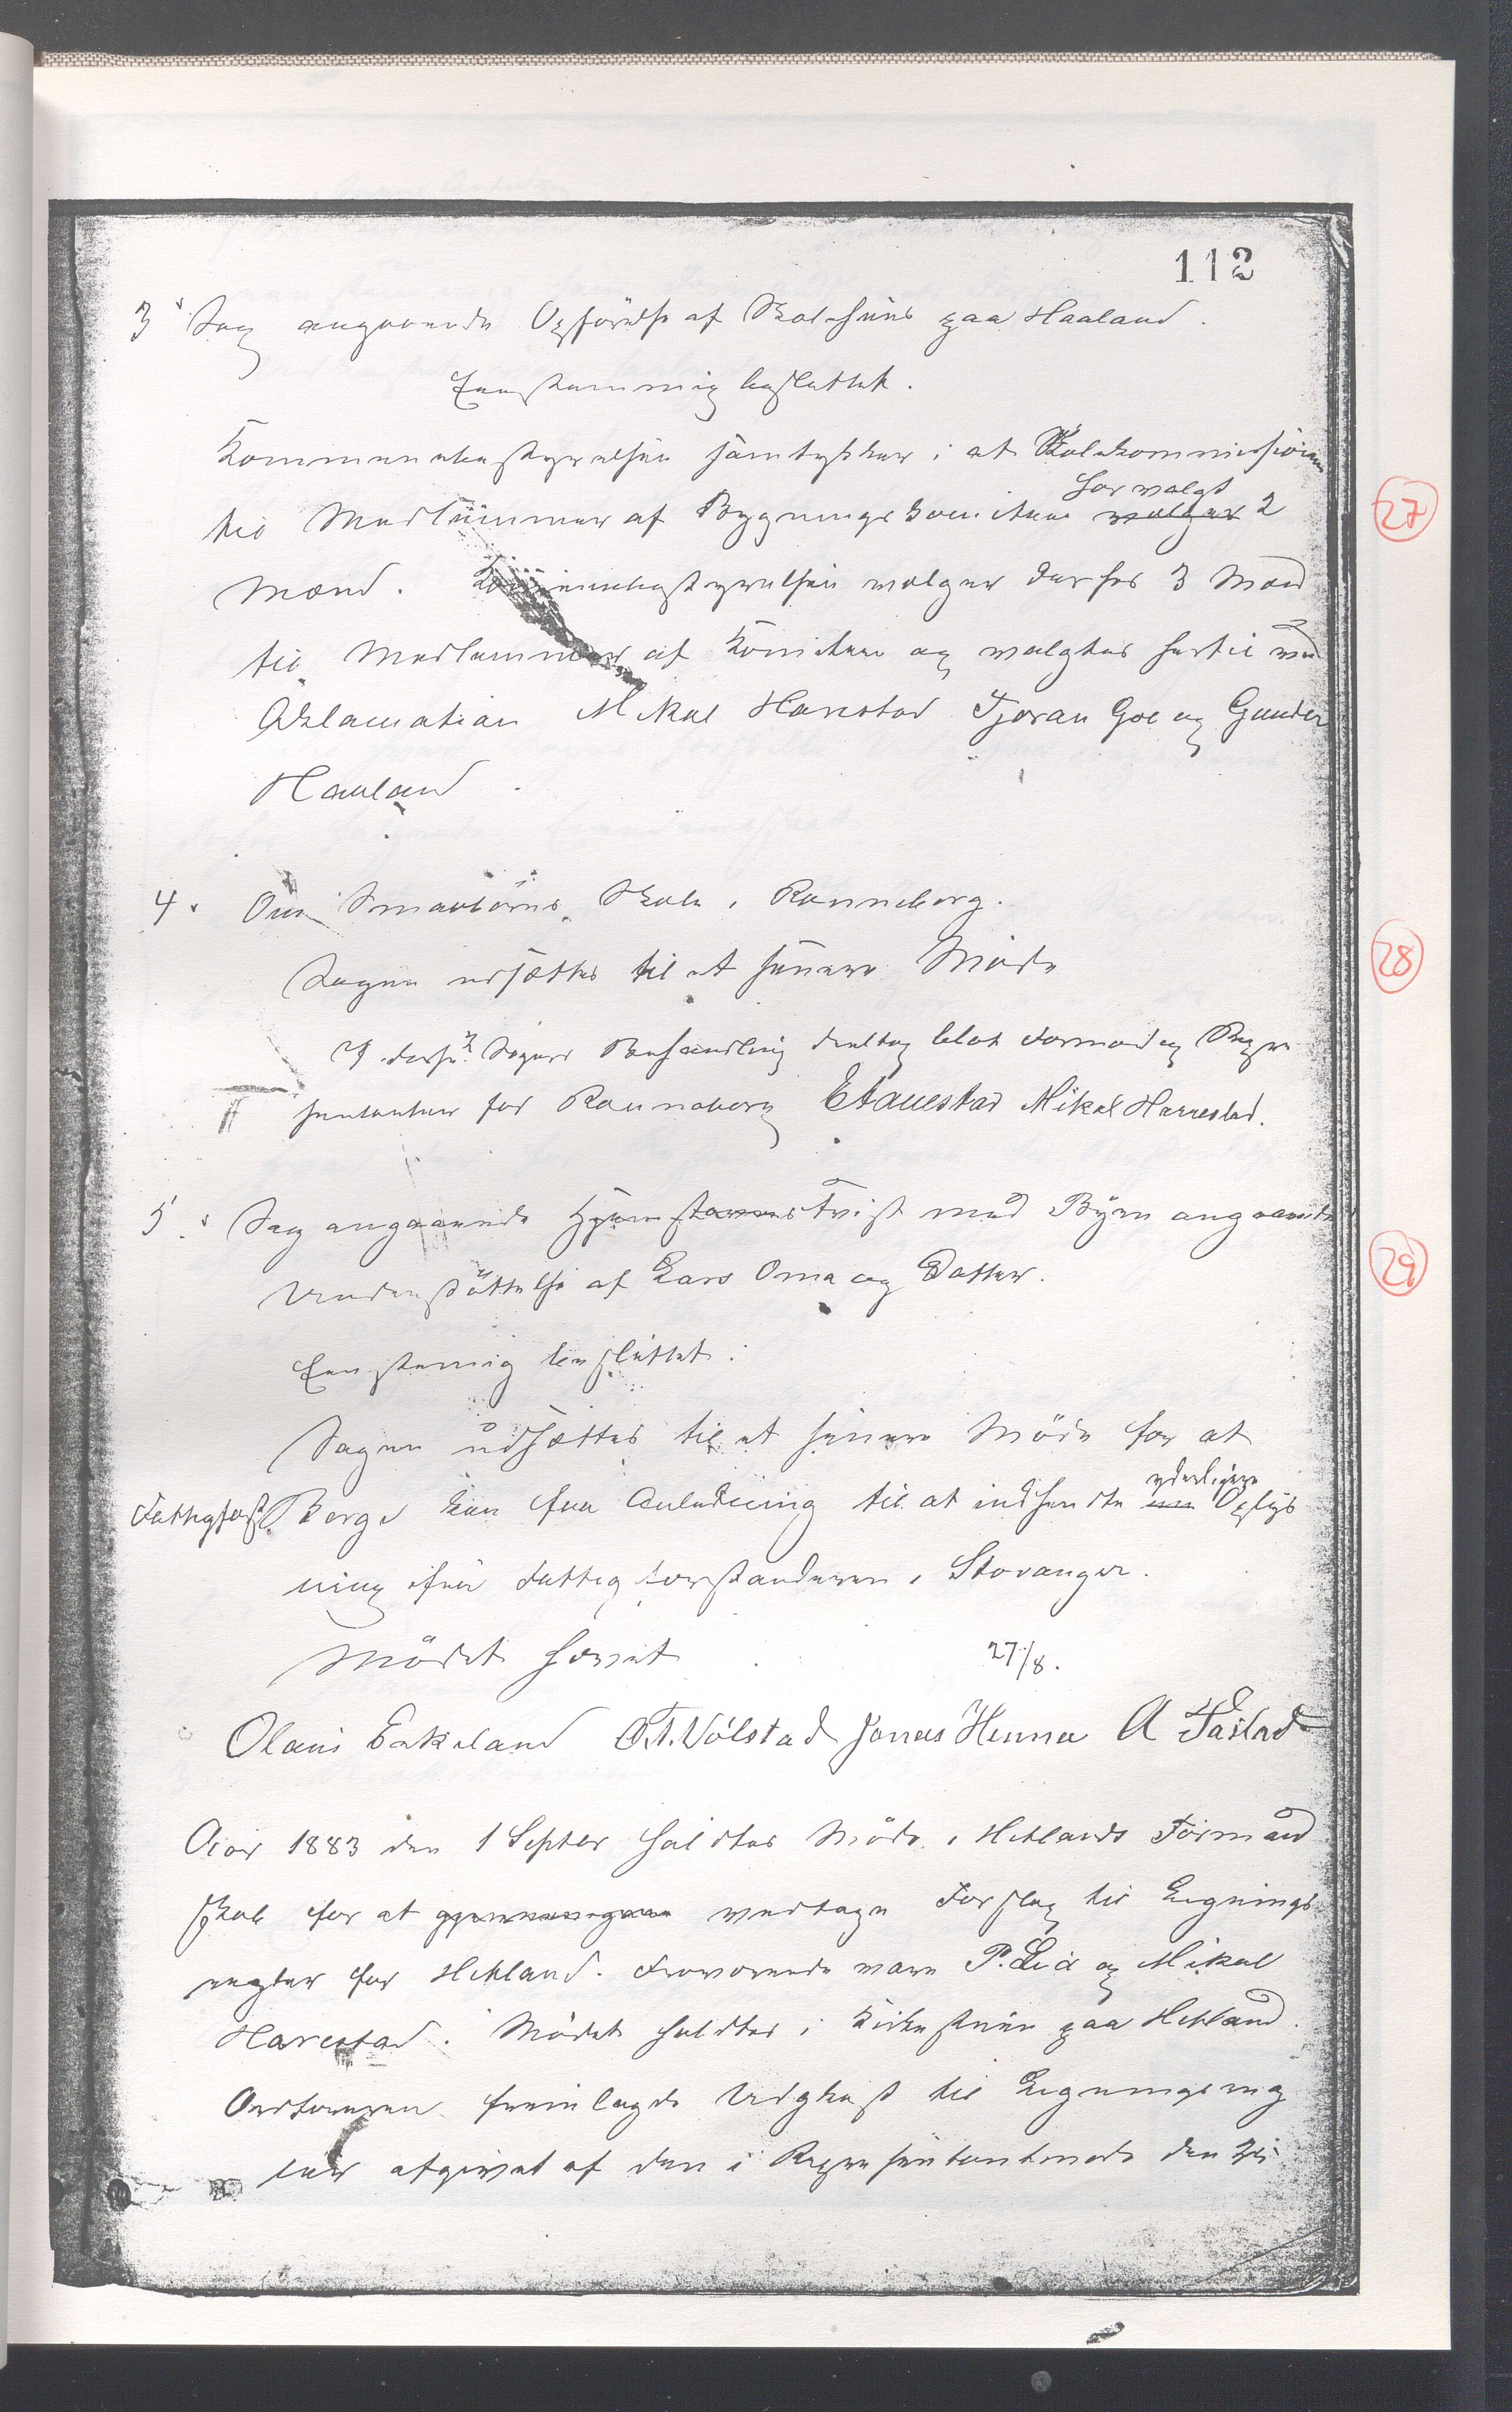 112
3. Sag angaaende Opförelse af Skolehuus paa Haaland.
Eenstemmig besluttet.
Kommunebestyrelsen samtykker i at Skolekommissionen
til Medlemmer af Bygningskomiteen har valgt valger 2
Mænd. Kommunebestyrelsen valger derfor 3 Mænd
til Medlemmer af Komiteen og valgtes hertil ved
Aklamation Mikal Harestad Tjeran Goe og Gunder
Hauland
27
4. Om Smaabörns Skole i Renneberg.
Sagen udsættes til et senere Möde
I disse 2 Sagers Behandling deeltog blot Formænd og Repre
sentanter for Renneberg EtAuestad Mikal Harrestad.
28
5. Sag angaaende Hjemstavns Tvist med Byen angaaende
Understöttelse af Lars Oma og Datter.
29
Eenstemmig besluttet:
Sagen udsættes til et senere Möde for at
Fattigforst. Berge kan faa Anledning til at indsende yderligere Oplys
ning ifra Fattigforstanderen i Stavanger.
Mödet hævet 27/8.
Olaus Eskeland O.T. Völstad Jonas Henna A
Aar 1883 den 1 Septbr holdtes Möde i Hetlands Formand
skab for at vedtage Forslag til Lignings
regler for Hetland. Fraværende vare P. Lid og Mikal
Harestad. Mödet holdtes i Kirkestuen paa Hetland.
Ordföreren fremlagde Udkast til Ligningsreg
ler afgivet af den i Repræsentantmöde den